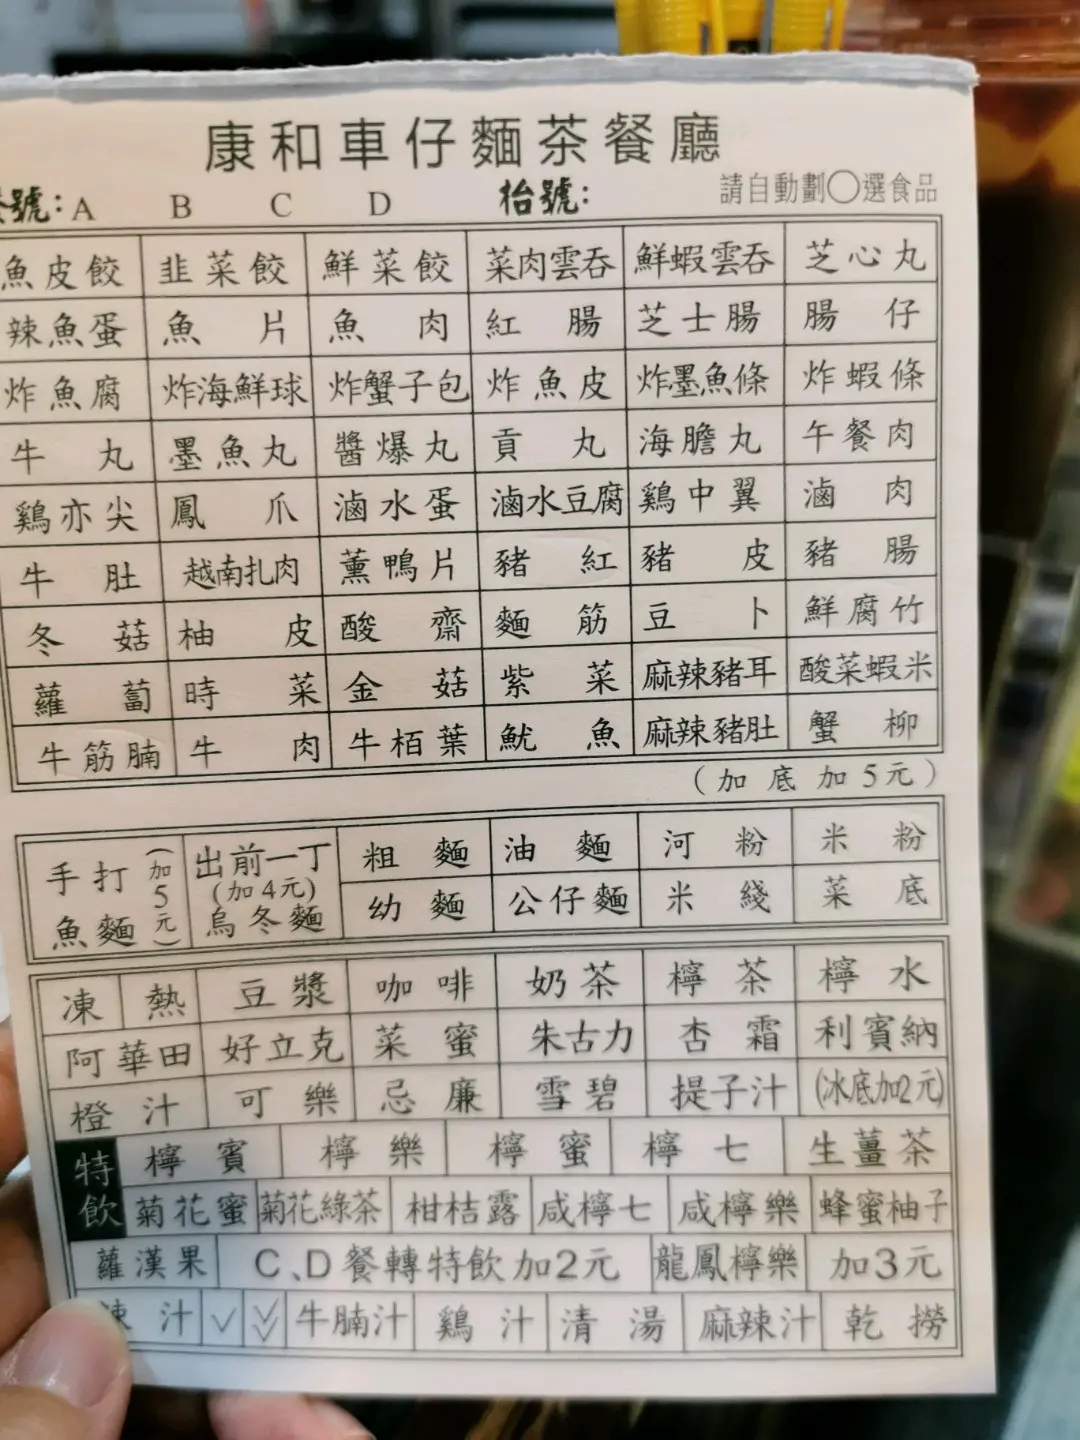 康和車仔麵茶餐廳
號: A B C D 枱號: 請自動劃〇選食品
魚皮餃 韭菜餃 鮮菜餃 菜肉雲吞 鮮蝦雲吞 芝心丸
辣魚蛋 魚片 魚肉 紅腸 芝士腸 腸仔
炸魚腐 炸海鮮球 炸蟹子包 炸魚皮 炸墨魚條 炸蝦條
牛丸 墨魚丸 醬爆丸 貢丸 海膽丸 午餐肉
鷄亦尖 鳳爪 滷水蛋 滷水豆腐 鷄中翼 滷肉
牛肚 越南扎肉 薰鴨片 豬紅 豬皮 豬腸
冬菇 柚皮 酸齋 麵筋 豆卜 鮮腐竹
蘿蔔 時菜 金菇 紫菜 麻辣豬耳 酸菜蝦米
牛筋腩 牛肉 牛栢葉 魷魚 麻辣豬肚 蟹柳
(加底加5元)
手打魚麵(加5元) 出前一丁(加4元)烏冬麵 粗麵 油麵 河粉 米粉
幼麵 公仔麵 米綫 菜底
凍 熱 豆漿 咖啡 奶茶 檸茶 檸水
阿華田 好立克 菜蜜 朱古力 杏霜 利賓納
橙汁 可樂 忌廉 雪碧 提子汁 (冰底加2元)
特飲 檸賓 檸樂 檸蜜 檸七 生薑茶
菊花蜜 菊花綠茶 柑桔露 咸檸七 咸檸樂 蜂蜜柚子
蘿漢果 C、D餐轉特飲加2元 龍鳳檸樂 加3元
汁 ✓ 牛腩汁 鷄汁 清湯 麻辣汁 乾撈